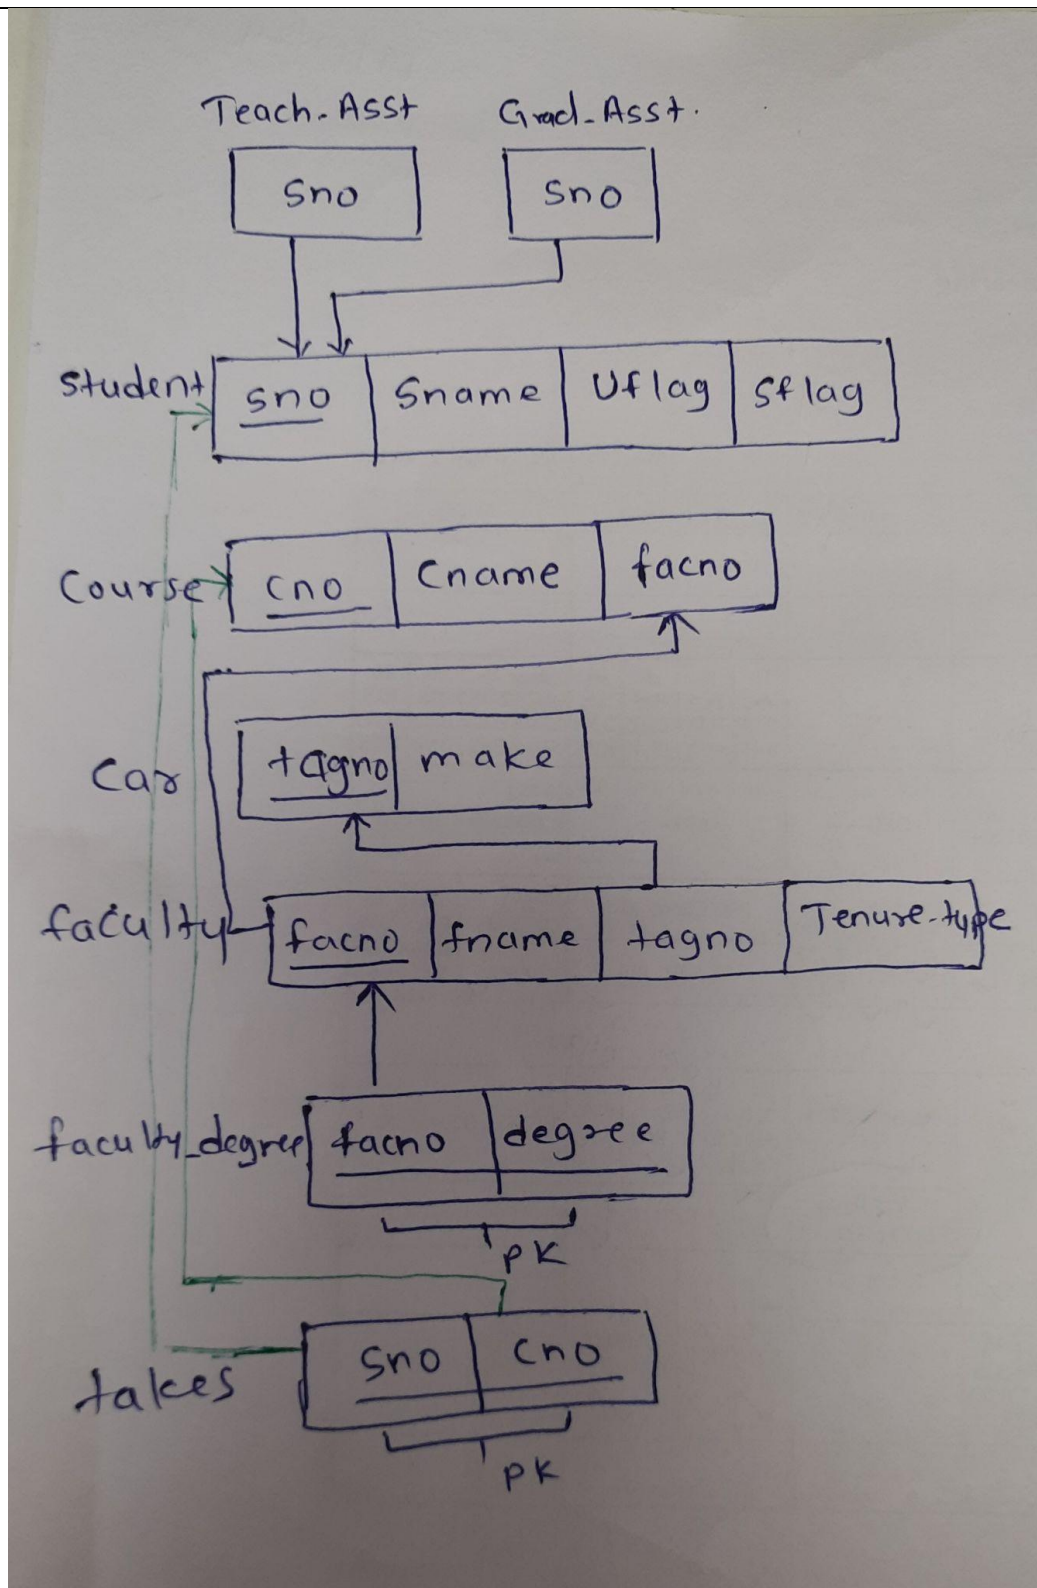 Teach-Asst Grad-Asst.
Sno Sno
student sno Sname Uflag Sflag
Course cno Cname facno
Car tagno make
faculty facno fname tagno Tenure-type
faculty_degree facno degree
PK
takes Sno Cno
PK